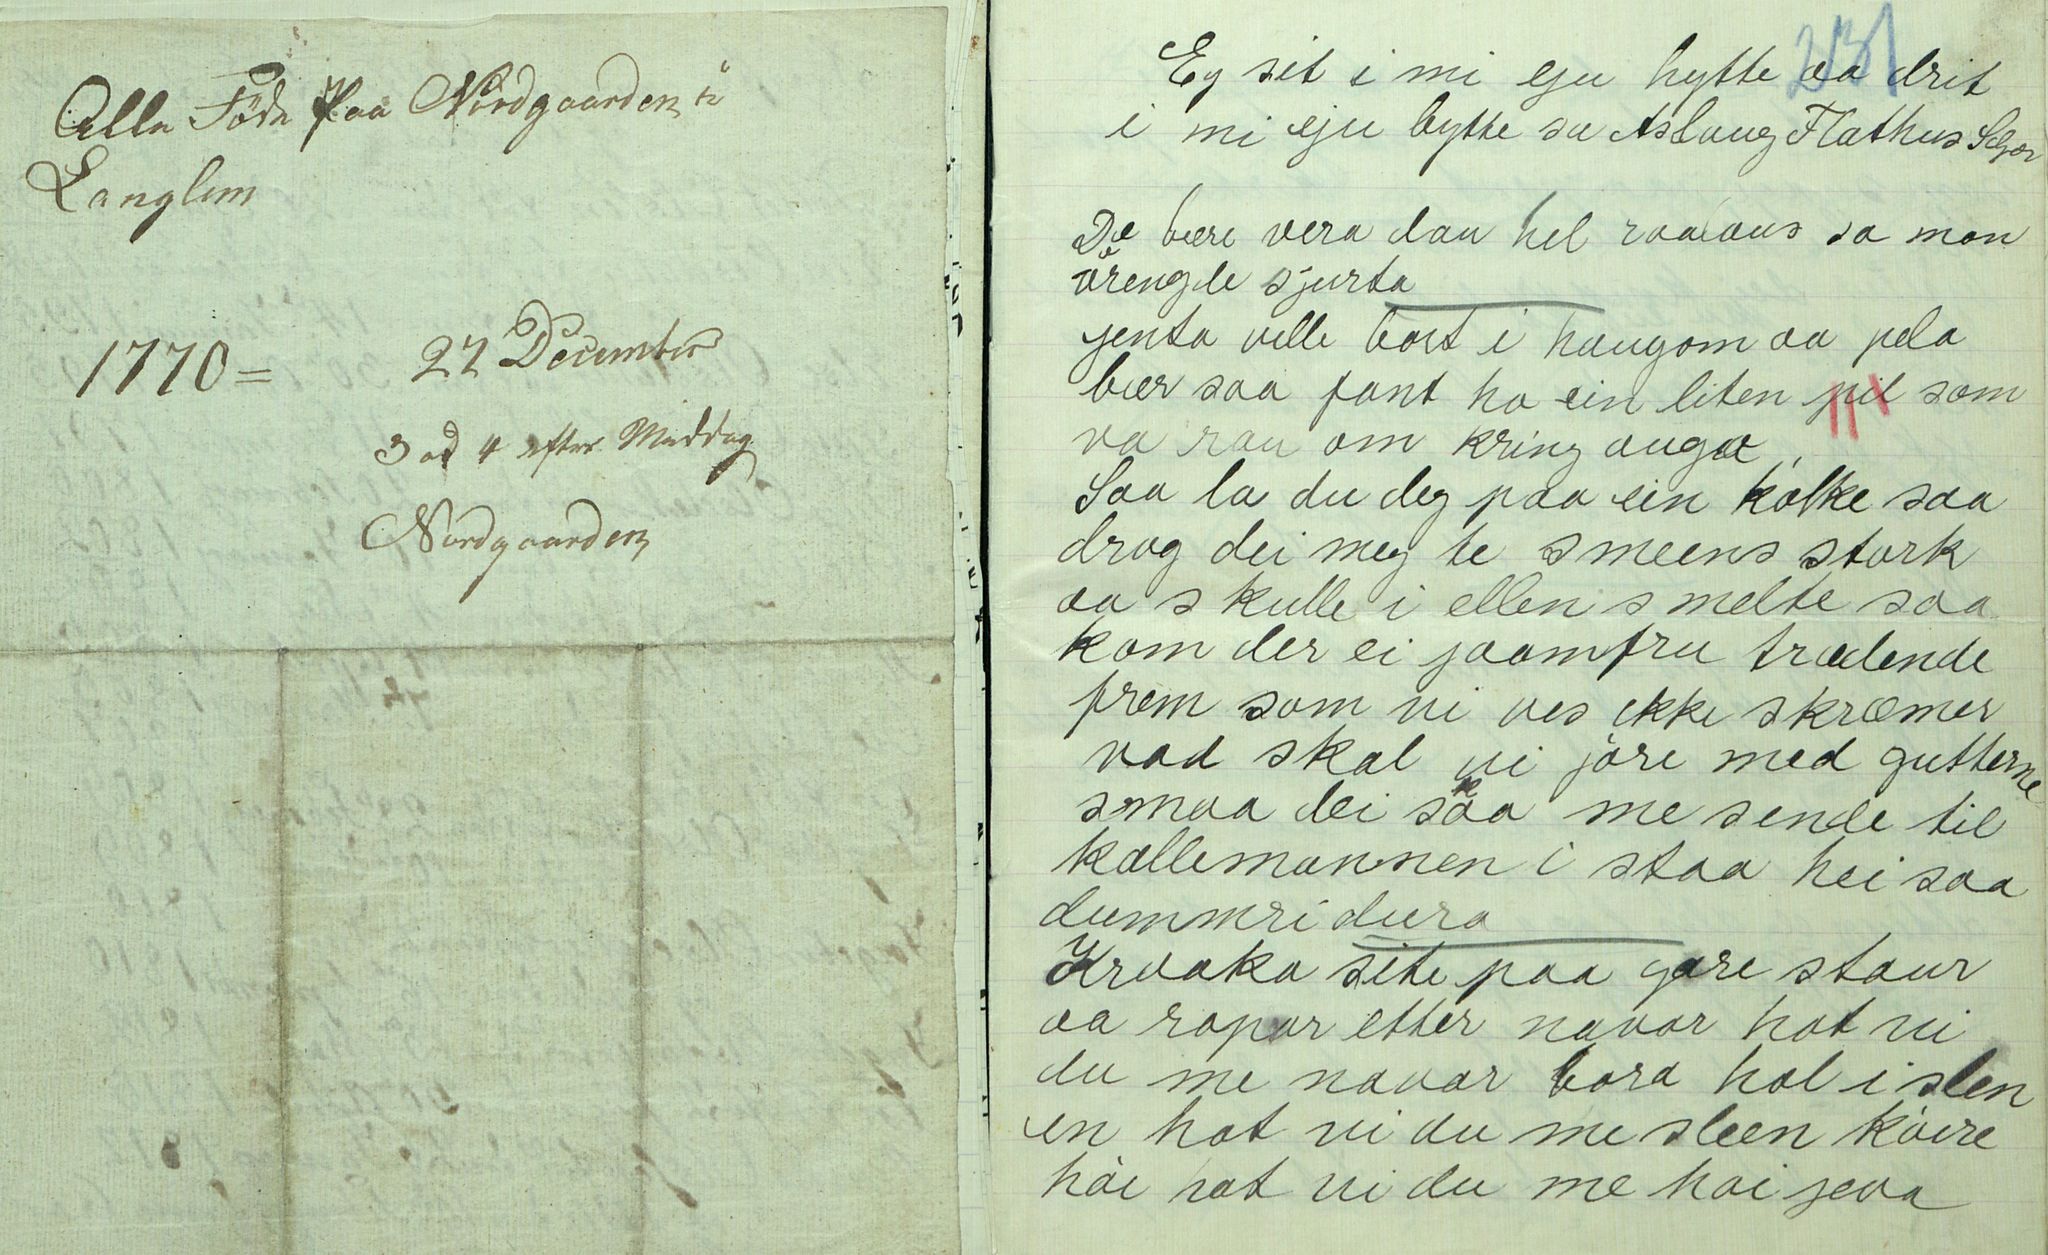 Alle Føde Paa Nordgaarden
Langlim
1770=
27 December
3 ad 4 efter Middag
Nordgaarden
231
Eg sit i mi eju hytte aa drit
i mi eju bytte sa Aslaug Flathus Seljor
De bere vera dau hel raalaus sa mon
vrengde sjurta
jenta ville bort i haugom aa pela
bær saa fant ho ein liten pil som
va rau om kring auga
Saa la du deg paa ein kolke saa
drog dei meg te smeens stork
aa skulle i ellen smelte saa
kom der ei jaamfru trædende
frem som vi ves ikke skræmer
vad skal vi jøre med gutterne
smaa dei ska me sende til
kallemannen i staa hei saa
dummri dura
Kraaka site paa gare staur
aa ropar etter navar hot vi
du me navar bora hol i slen
en hot vi du me sleen køire
høi hot vi du me hoi jeva